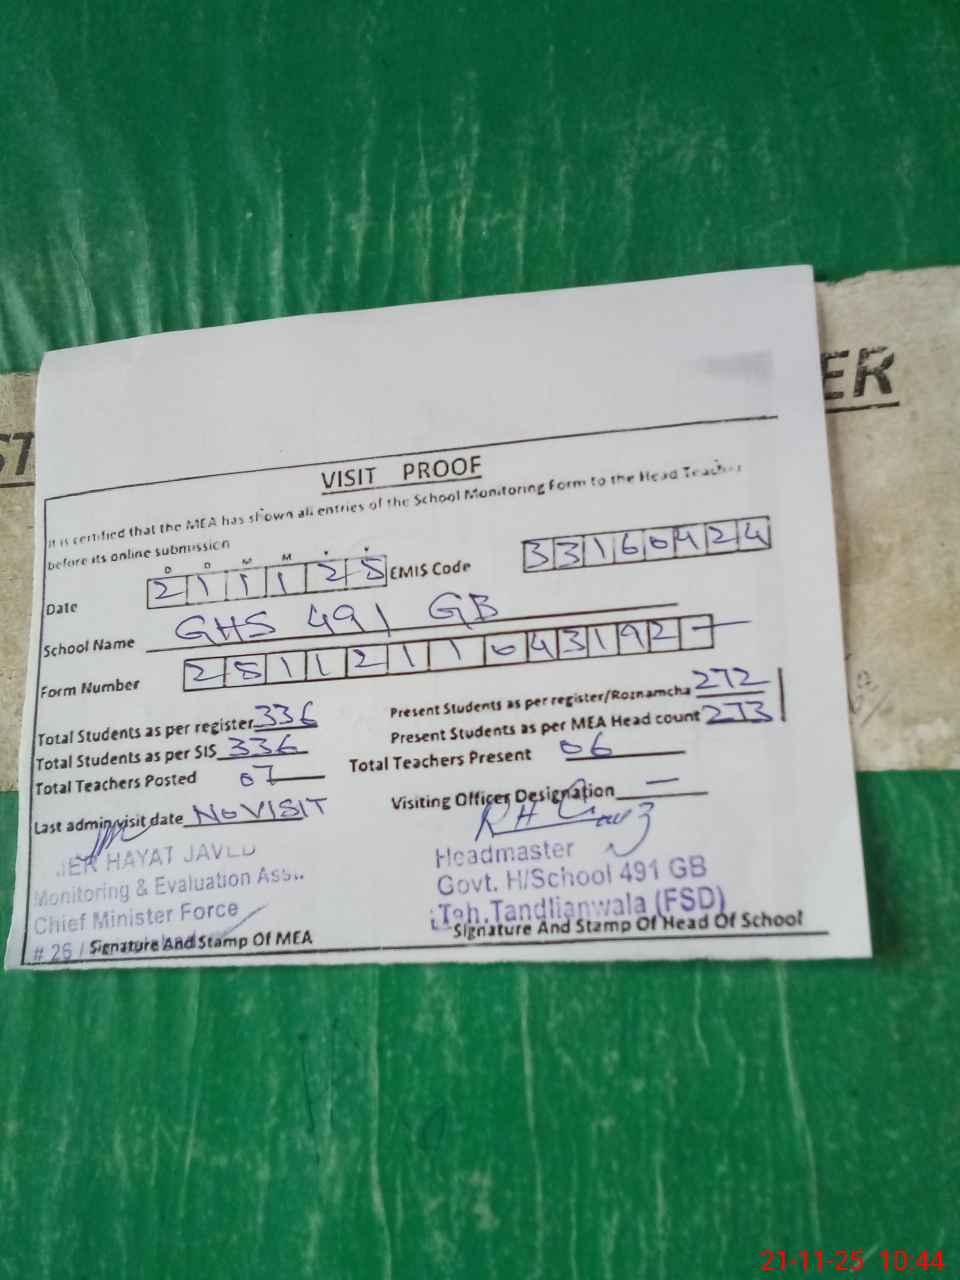 ER
ST
VISIT PROOF
It is certified that the MEA has shown all entries of the School Monitoring Form to the Head Teacher
before its online submission
D D M M Y Y
Date 2 1 1 1 2 5 EMIS Code 3 3 1 6 0 4 2 4
School Name GHS 491 GB
Form Number 2 5 1 1 2 1 1 0 4 3 1 9 2 -
Total Students as per register 336 Present Students as per register/Roznamcha 272
Total Students as per SIS 336 Present Students as per MEA Head count 273
Total Teachers Posted 07 Total Teachers Present 06
Last admin visit date No VISIT Visiting Officer Designation —
HAYAT JAVED Headmaster
Monitoring & Evaluation Ass.. Govt. H/School 491 GB
Chief Minister Force Teh.Tandlianwala (FSD)
# 26 / Signature And Stamp Of MEA Signature And Stamp Of Head Of School
21-11-25 10:44